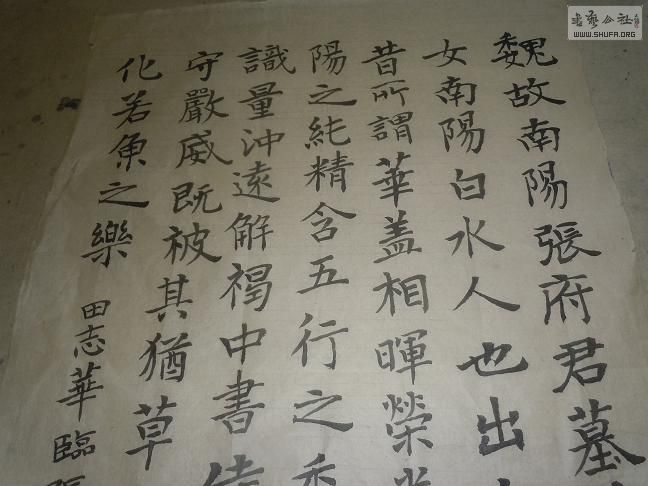 魏故南陽張府君墓
女南陽白水人也出
昔所謂華盖相暉榮
陽之純精含五行之秀
識量沖遠解褐中書侍
守嚴威既被其猶草
化若魚之樂
田志華臨張
書藝公社
WWW.SHUFA.ORG